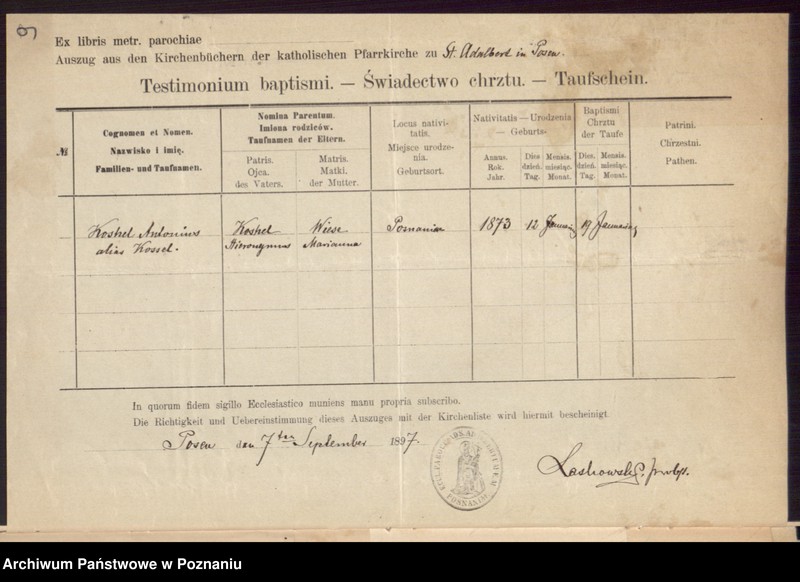 9
Ex libris metr. parochiae
Auszug aus den Kirchenbüchern der katholischen Pfarrkirche zu St. Adalbert in Posen.
Testimonium baptismi. — Świadectwo chrztu. — Taufschein.
№
Cognomen et Nomen.
Nazwisko i imię.
Familien- und Taufnamen.
Nomina Parentum.
Imiona rodziców.
Taufnamen der Eltern.
Patris.
Ojca.
des Vaters.
Matris.
Matki.
der Mutter.
Locus nativi-
tatis.
Miejsce urodze-
nia.
Geburtsort.
Nativitatis — Urodzenia
— Geburts-
Annus.
Rok.
Jahr.
Dies
dzień.
Tag.
Mensis.
miesiąc.
Monat.
Baptismi
Chrztu
der Taufe
Dies.
dzień.
Tag.
Mensis.
miesiąc.
Monat.
Patrini.
Chrzestni.
Pathen.
Koshel Antonius
alias Kossel.
Koshel
Hieronymus
Wiese
Marianna
Posnaniae
1873
12
Januar
19
Januar
In quorum fidem sigillo Ecclesiastico muniens manu propria subscribo.
Die Richtigkeit und Uebereinstimmung dieses Auszuges mit der Kirchenliste wird hiermit bescheinigt.
Posen den 7ten September 1897.
POSNANIAE
Laskowski, probst.
Archiwum Państwowe w Poznaniu